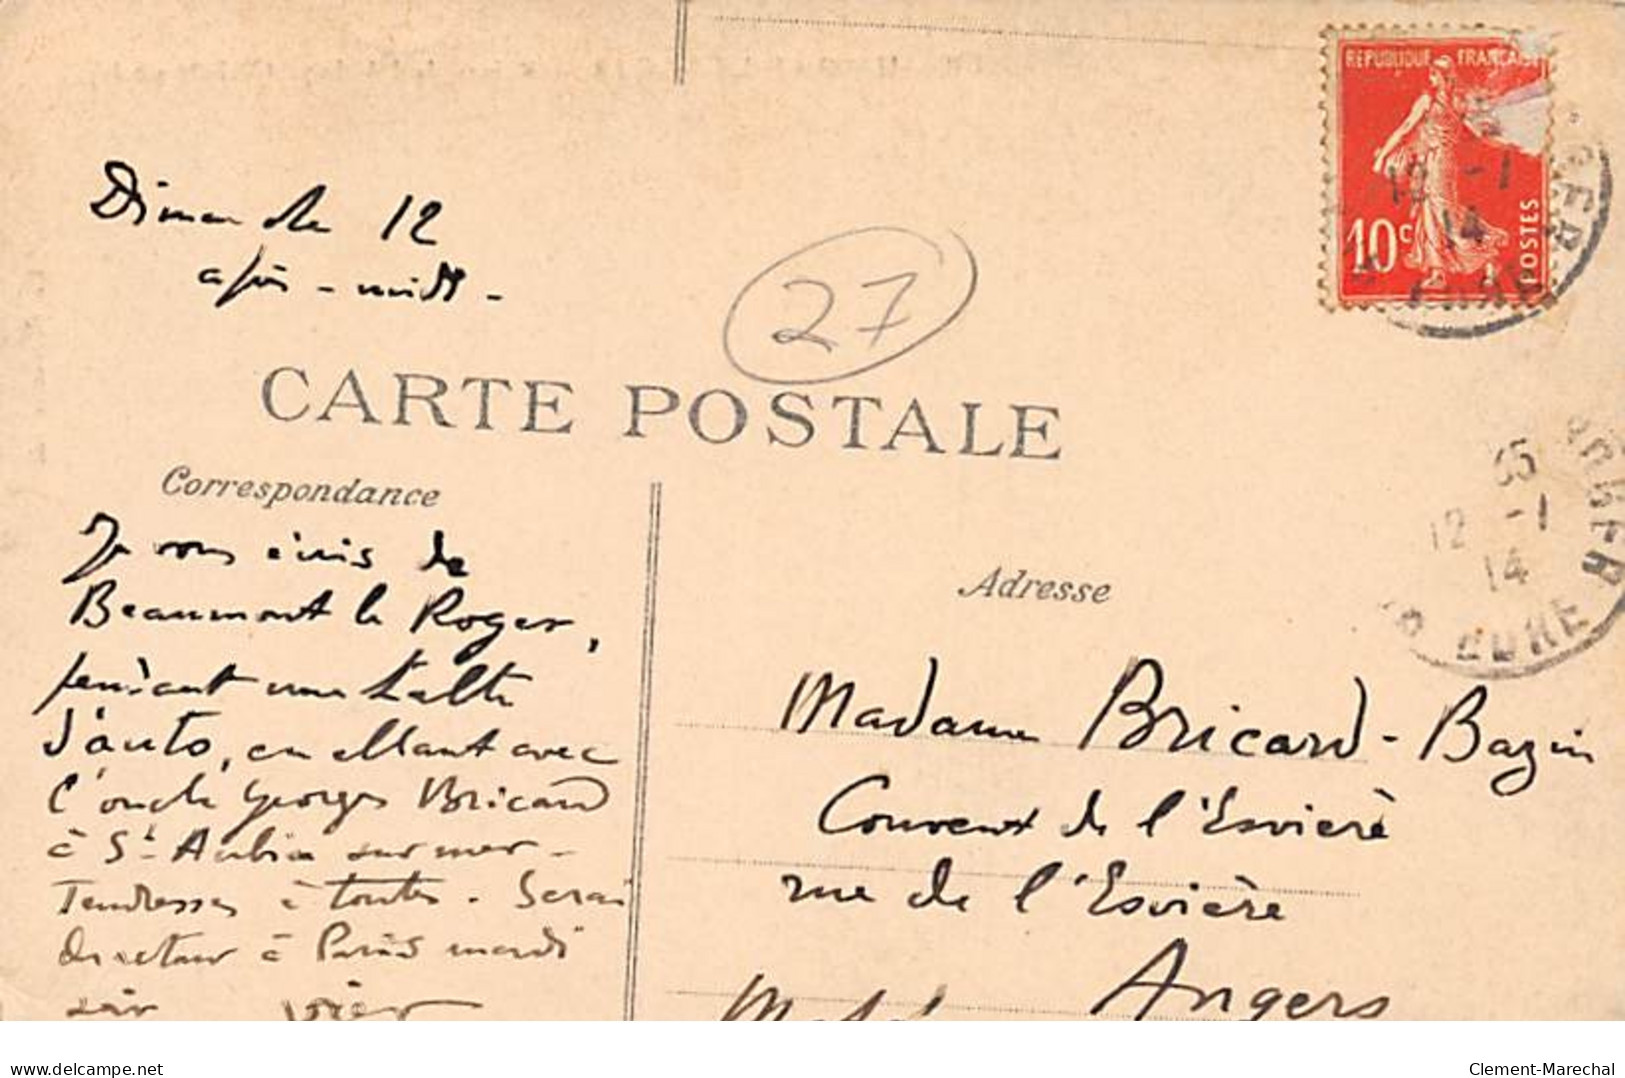 REPUBLIQUE FRANÇAISE
10c
POSTES
12 -1
14
Dimanche 12
après-midi -
27
CARTE POSTALE
Correspondance
Adresse
35
12 -1
14
EURE
Je vous écris de
Beaumont le Roger,
pendant une halte
d'auto, en allant avec
l'oncle Georges Bricard
à St Aubin sur mer -
Tendresses à toutes. Serai
à Paris mardi
soir
Madame Bricard-Bazin
Couvent de l'Esvière
rue de l'Esvière
Angers
www.delcampe.net
Clement-Marechal